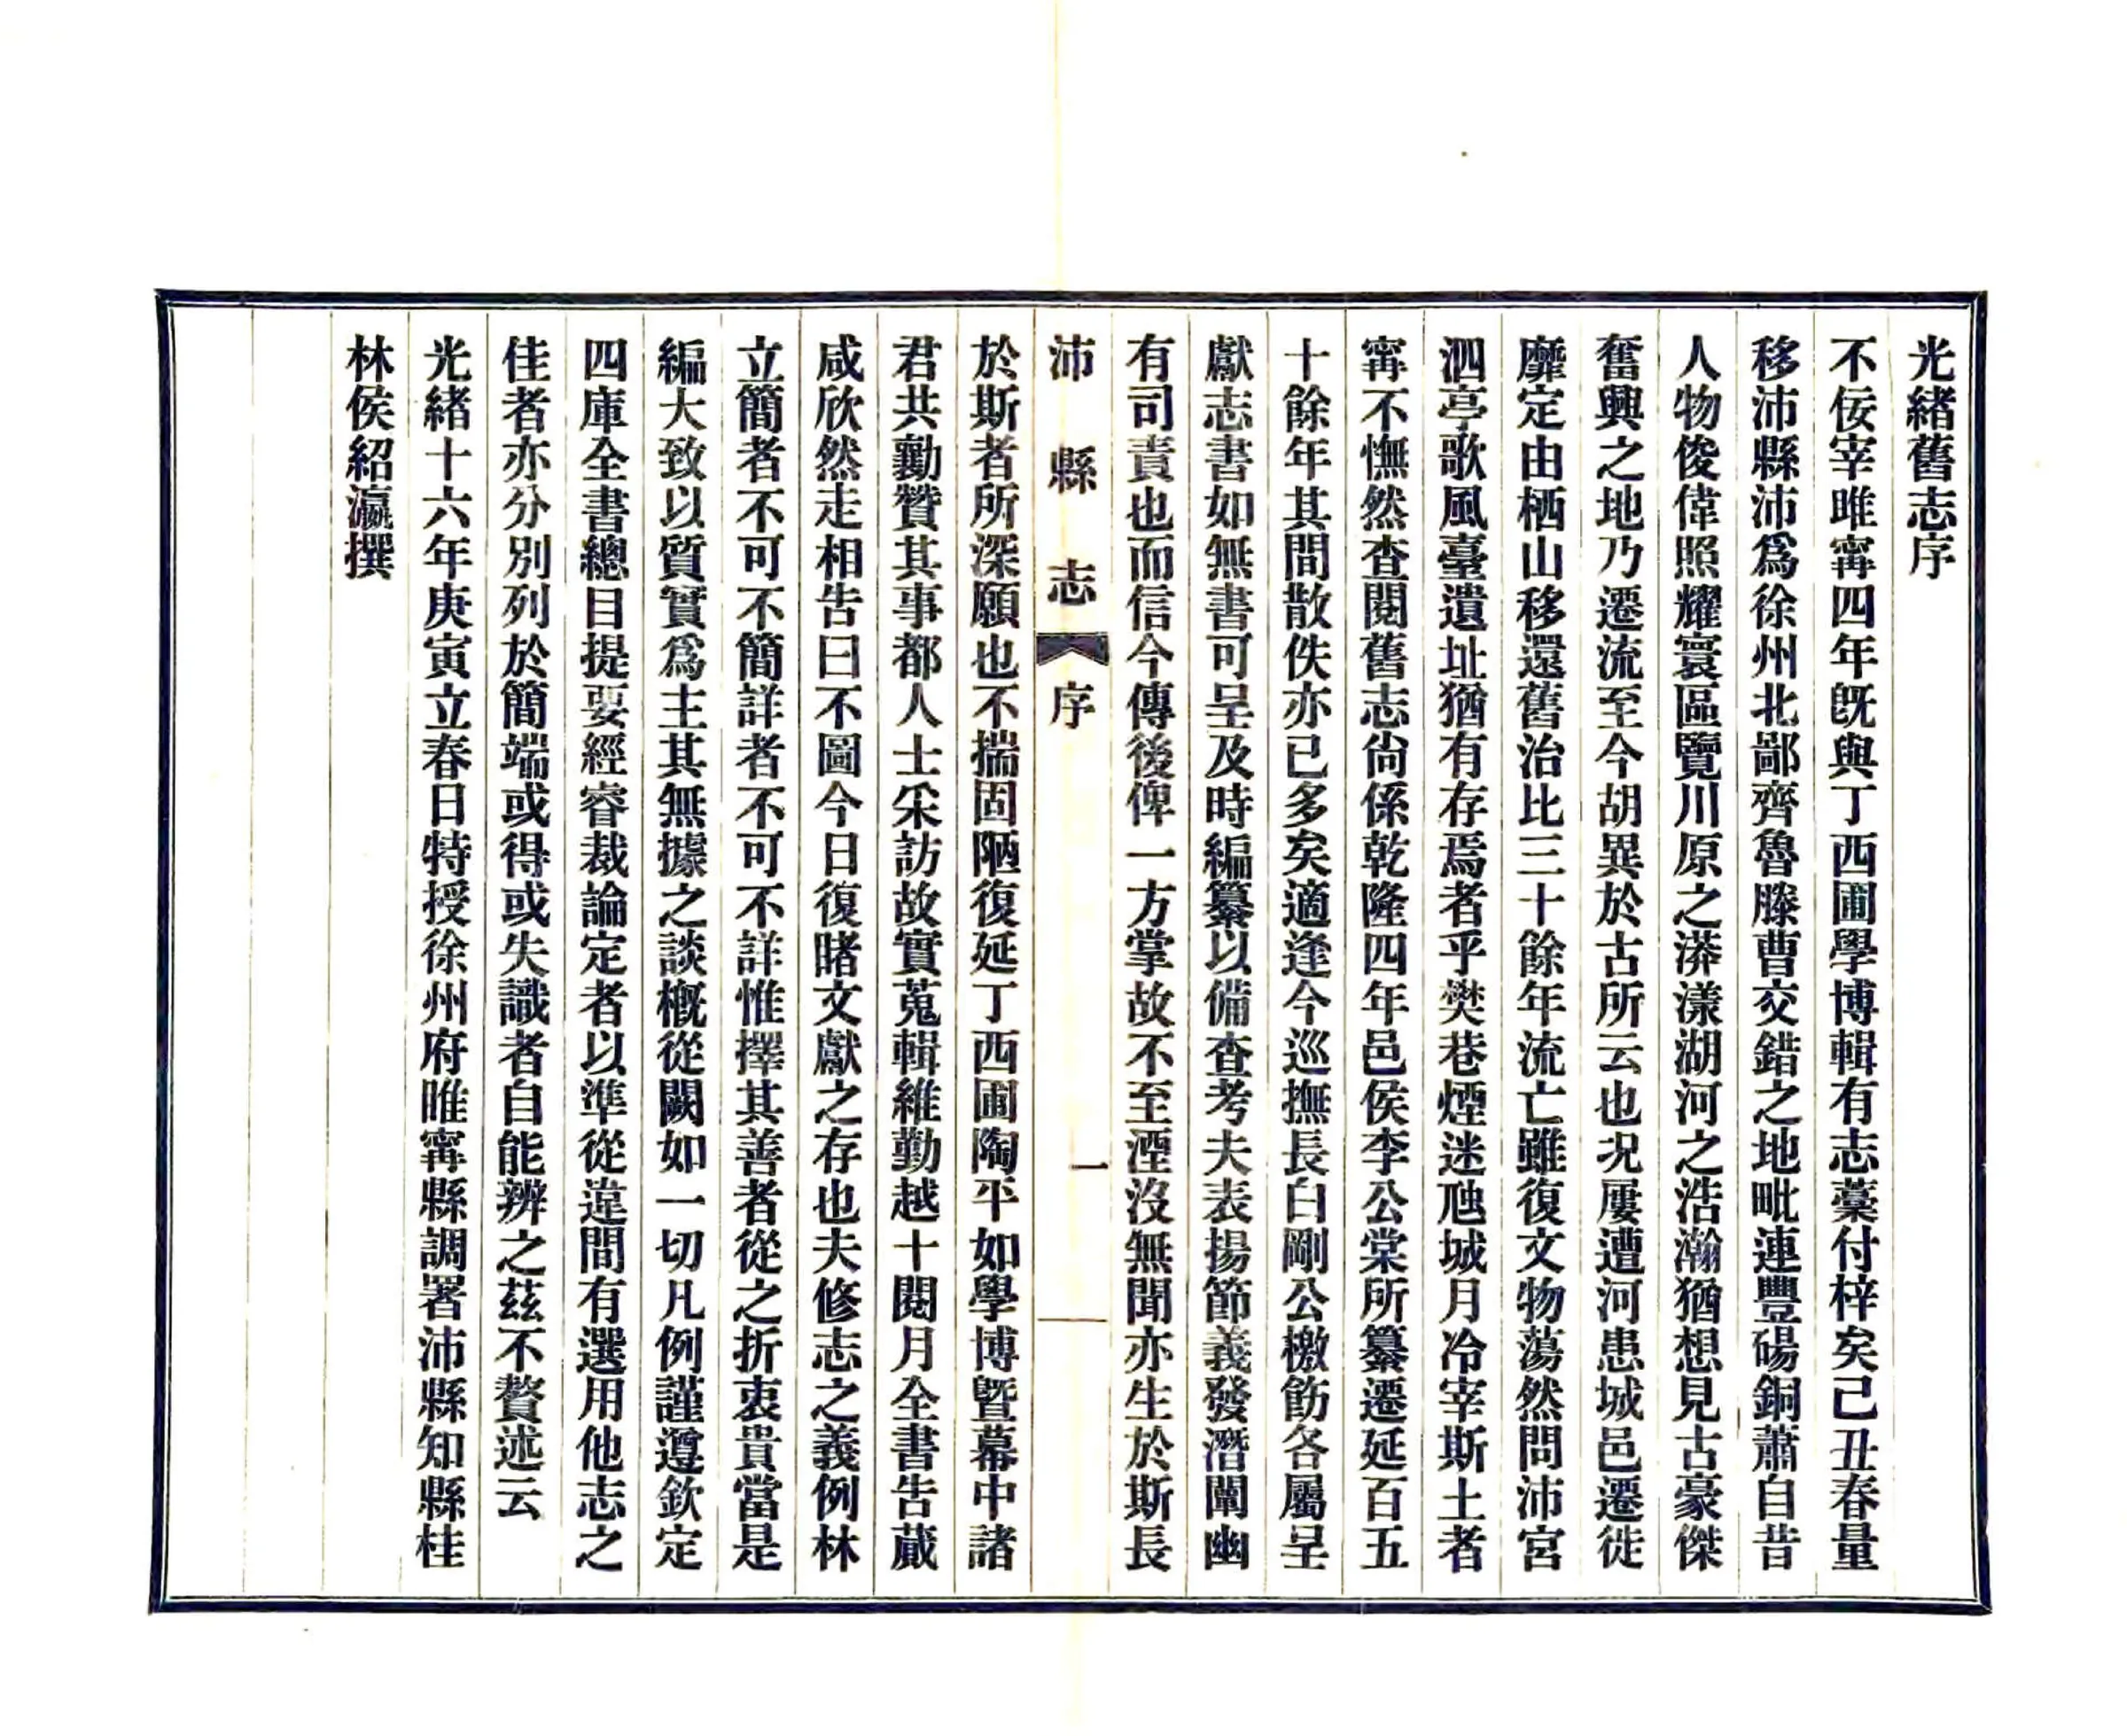 光緒舊志序
不佞宰睢甯四年旣與丁西圃學博輯有志藁付梓矣己丑春量
移沛縣沛爲徐州北鄙齊魯滕曹交錯之地毗連豐碭銅蕭自昔
人物俊偉照耀寰區覽川原之漭漾湖河之浩瀚猶想見古豪傑
奮興之地乃遷流至今胡異於古所云也况屢遭河患城邑遷徙
靡定由栖山移還舊治比三十餘年流亡雖復文物蕩然問沛宮
泗亭歌風臺遺址猶有存焉者乎樊巷煙迷虺城月冷宰斯土者
甯不憮然查閱舊志尙係乾隆四年邑侯李公棠所纂遷延百五
十餘年其間散佚亦已多矣適逢今巡撫長白剛公檄飭各屬呈
獻志書如無書可呈及時編纂以備查考夫表揚節義發潛闡幽
有司責也而信今傳後俾一方掌故不至湮沒無聞亦生於斯長
沛縣志 序 一
於斯者所深願也不揣固陋復延丁西圃陶平如學博曁幕中諸
君共勷贊其事都人士采訪故實蒐輯維勤越十閱月全書告蕆
咸欣然走相告曰不圖今日復睹文獻之存也夫修志之義例林
立簡者不可不簡詳者不可不詳惟擇其善者從之折衷貴當是
編大致以質實爲主其無據之談槪從闕如一切凡例謹遵欽定
四庫全書總目提要經睿裁論定者以準從違間有選用他志之
佳者亦分別列於簡端或得或失識者自能辨之茲不贅述云
光緒十六年庚寅立春日特授徐州府睢甯縣調署沛縣知縣桂
林侯紹瀛撰